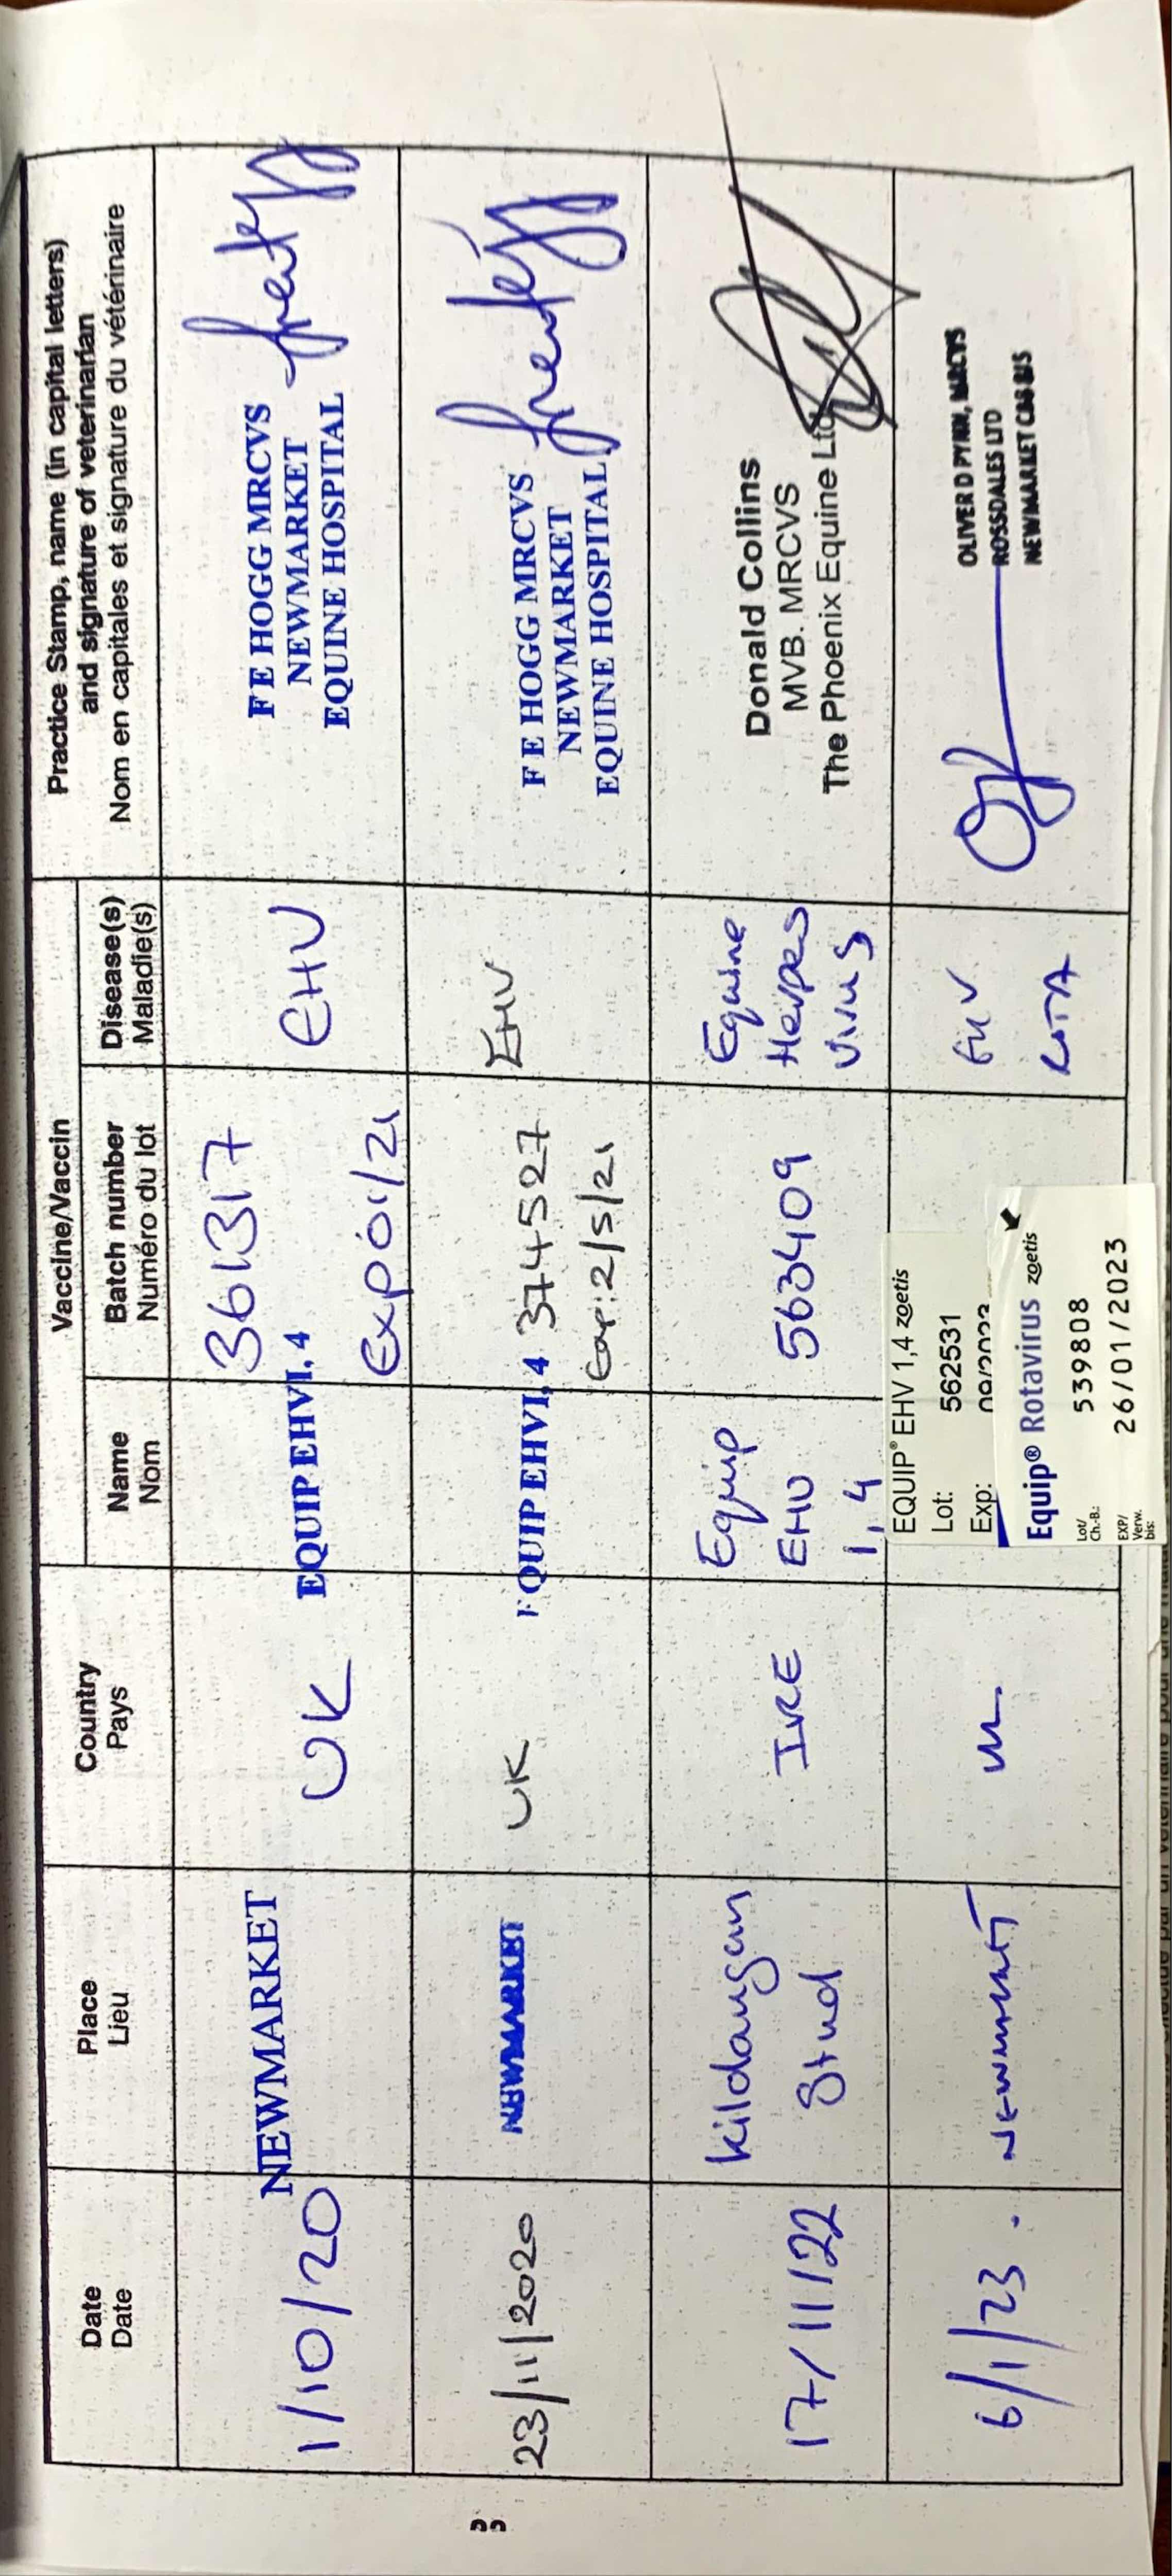 Date
Date
Place
Lieu
Country
Pays
Vaccine/Vaccin
Name
Nom
Batch number
Numéro du lot
Disease(s)
Maladie(s)
Practice Stamp, name (in capital letters)
and signature of veterinarian
Nom en capitales et signature du vétérinaire
1/10/20
NEWMARKET
UK
EQUIP EHV1, 4
361317
Exp 01/21
EHV
F E HOGG MRCVS
NEWMARKET
EQUINE HOSPITAL
23/11/2020
NEWMARKET
UK
EQUIP EHV1, 4
374527
Exp: 2/5/21
EHV
F E HOGG MRCVS
NEWMARKET
EQUINE HOSPITAL
17/11/22
Kildangan
Stud
IRE
Equip
EHV
1, 4
563409
Equine
Herpes
Virus
Donald Collins
MVB. MRCVS
The Phoenix Equine Ltd
6/1/23.
Newmarket
UK
EQUIP® EHV 1,4 zoetis
Lot: 562531
Exp: 09/2023
Equip® Rotavirus zoetis
Lot/
Ch.-B.: 539808
EXP/
Verw.
bis: 26/01/2023
EHV
ROTA
OLIVER D PYNN, MRCVS
ROSSDALES LTD
NEWMARKET CB8 8JS